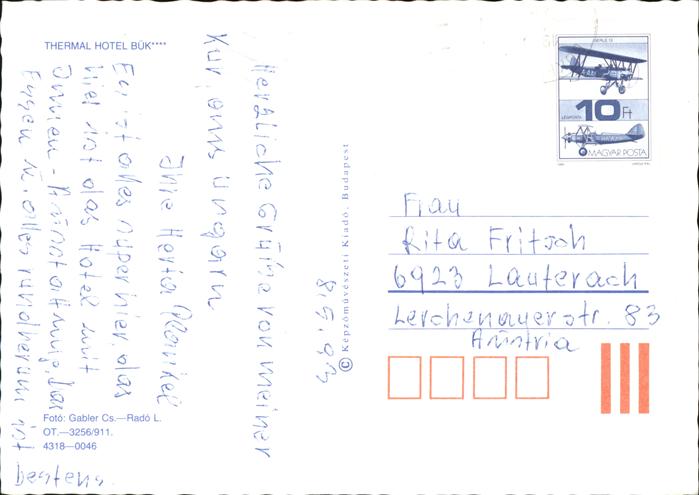 THERMAL HOTEL BÜK****
Herzliche Grüße von meiner
Kur, aus Ungarn
Ihre Herta
8.5.93
Es ist alles super hier, das
viel das Hotel mit
das
Essen u. alles rundherum ist
bestens.
Fotó: Gabler Cs.—Radó L.
OT.—3256/911.
4318—0046
© Képzőművészeti Kiadó, Budapest
GERLE 13
LÉGIPOSTA
10 Ft
MAGYAR POSTA
Frau
Rita Fritsch
6923 Lauterach
Lerchenauerstr. 83
Austria